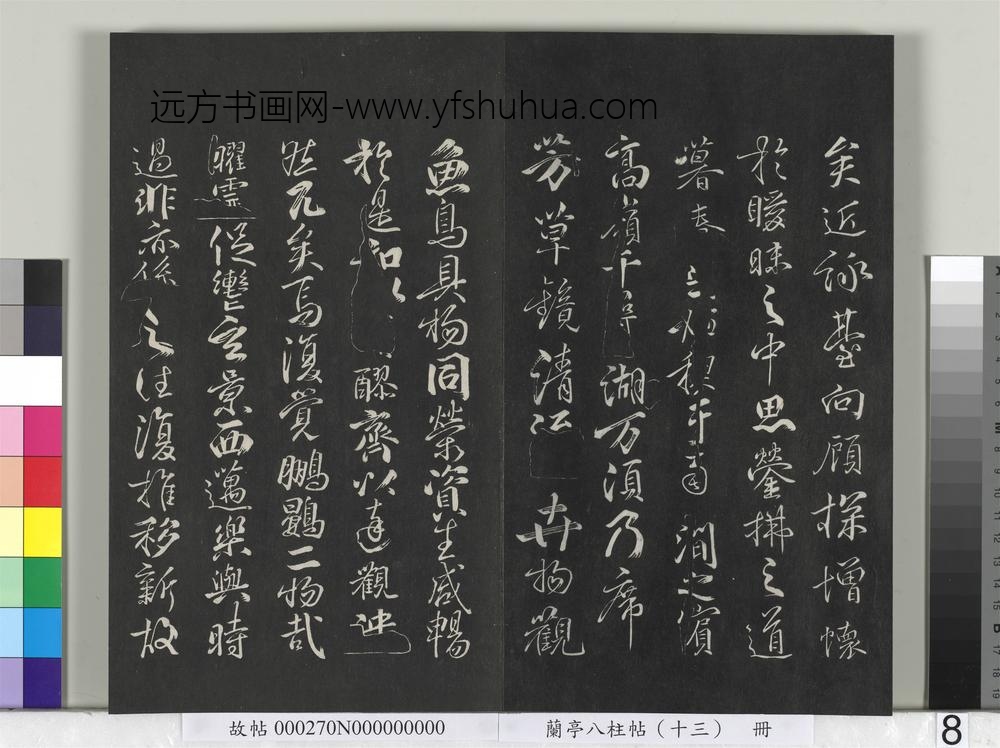 远方书画网-www.yfshuhua.com
矣近詠臺向顧探增懷
於曖昧之中思縈拂之道
暮春禊于南澗之濱
高嶺千尋湖万頃乃席
芳草鏡清卉物觀
魚鳥具物同榮資生咸暢
於是和以醪齊以達觀
然兀矣焉復覺鵬鷃二物哉
曜靈促轡玄景西邁樂與時
過非亦係之往復推移新故
故帖 000270N000000000
蘭亭八柱帖（十三） 冊
8